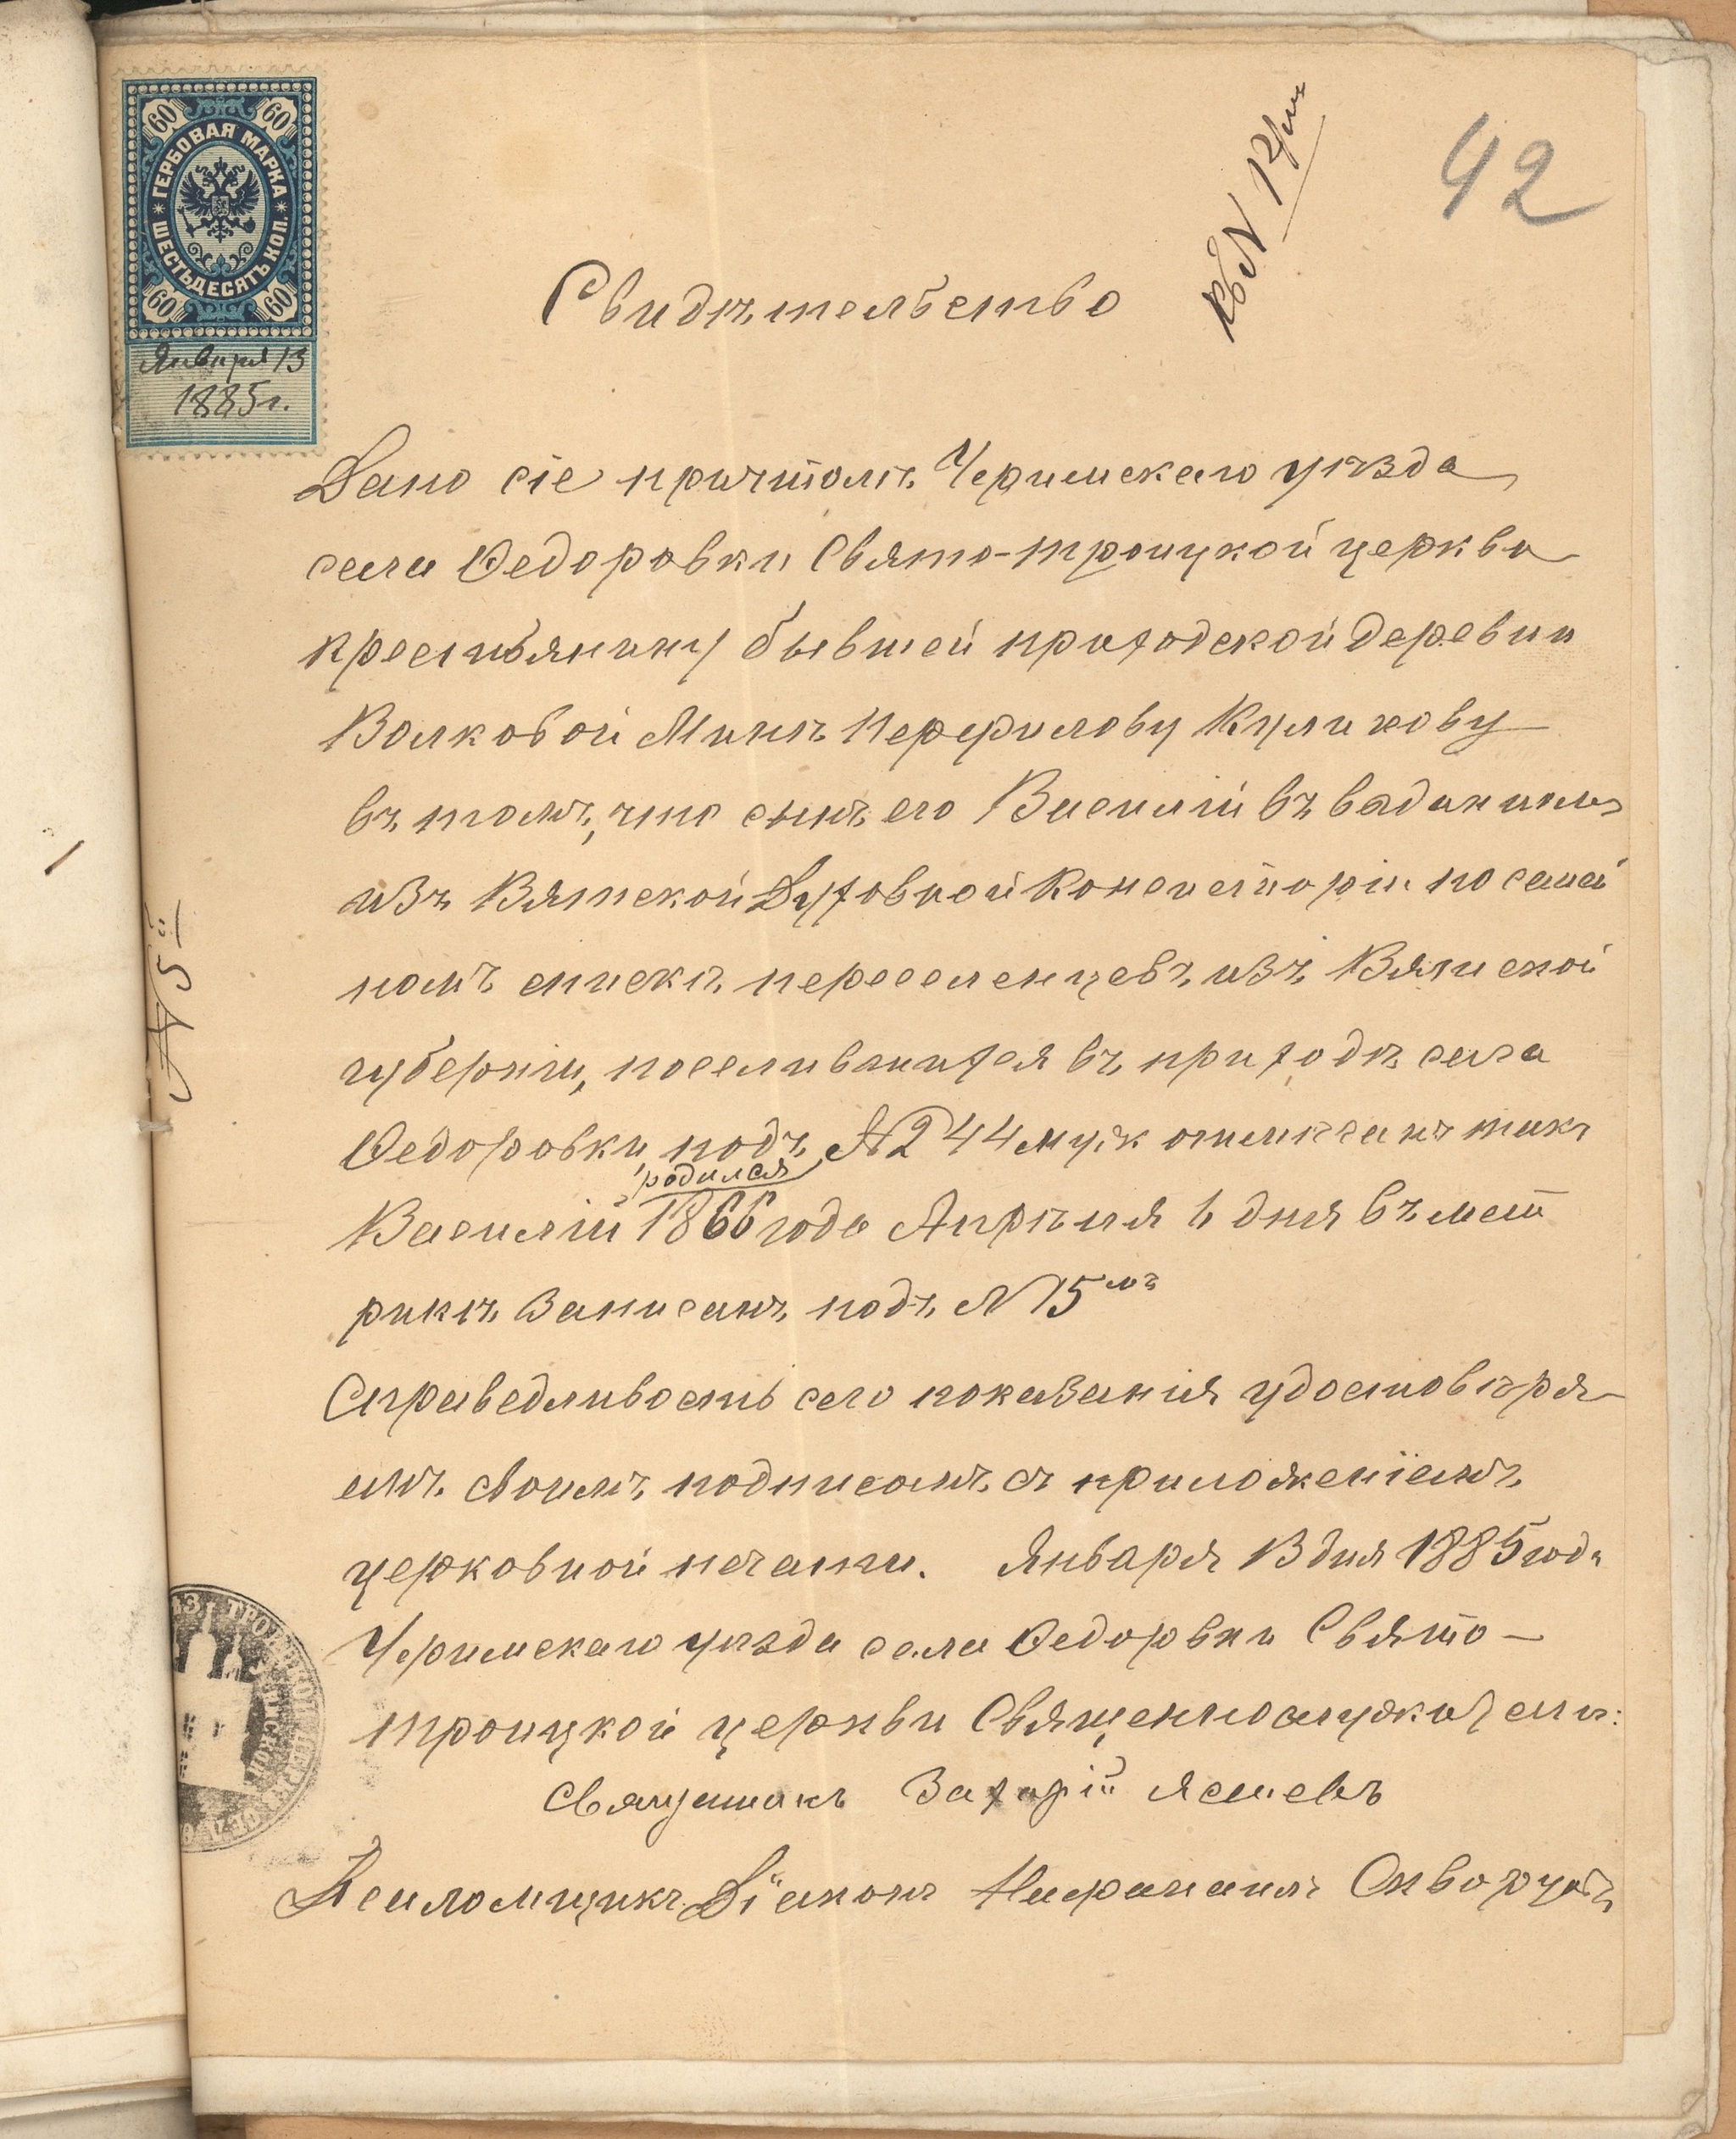 42
60 60
ГЕРБОВАЯ МАРКА
ШЕСТЬДЕСЯТЪ КОП.
60 60
Января 13
1885 г.
Свидѣтельство
Дано сіе причтомъ Уфимскаго уѣзда
села Ѳедоровки Свято-Троицкой церкви
крестьянину бывшей приходской деревни
Волковой Минѣ Перфилову Куликову
въ томъ, что сынъ его Василій въ
изъ Вятской Духовной Консисторіи посемей
номъ спискѣ переселенцевъ изъ Вятской
губерніи, поселившихся въ приходѣ села
Ѳедоровки подъ № 244 муж отмѣчанъ такъ
родился
Василій 1866 года Апрѣля 1 дня въ мет
рикѣ записанъ подъ № 15мъ
Справедливость сего показанія удостовѣря
емъ своимъ подписомъ съ приложеніемъ
церковной печати. Января 13 дня 1885 года
Уфимскаго уѣзда села Ѳедоровки Свято-
Троицкой церкви Священнослужители:
Священникъ Захарій Ясневъ
Псаломщикъ Діаконъ Скворцовъ